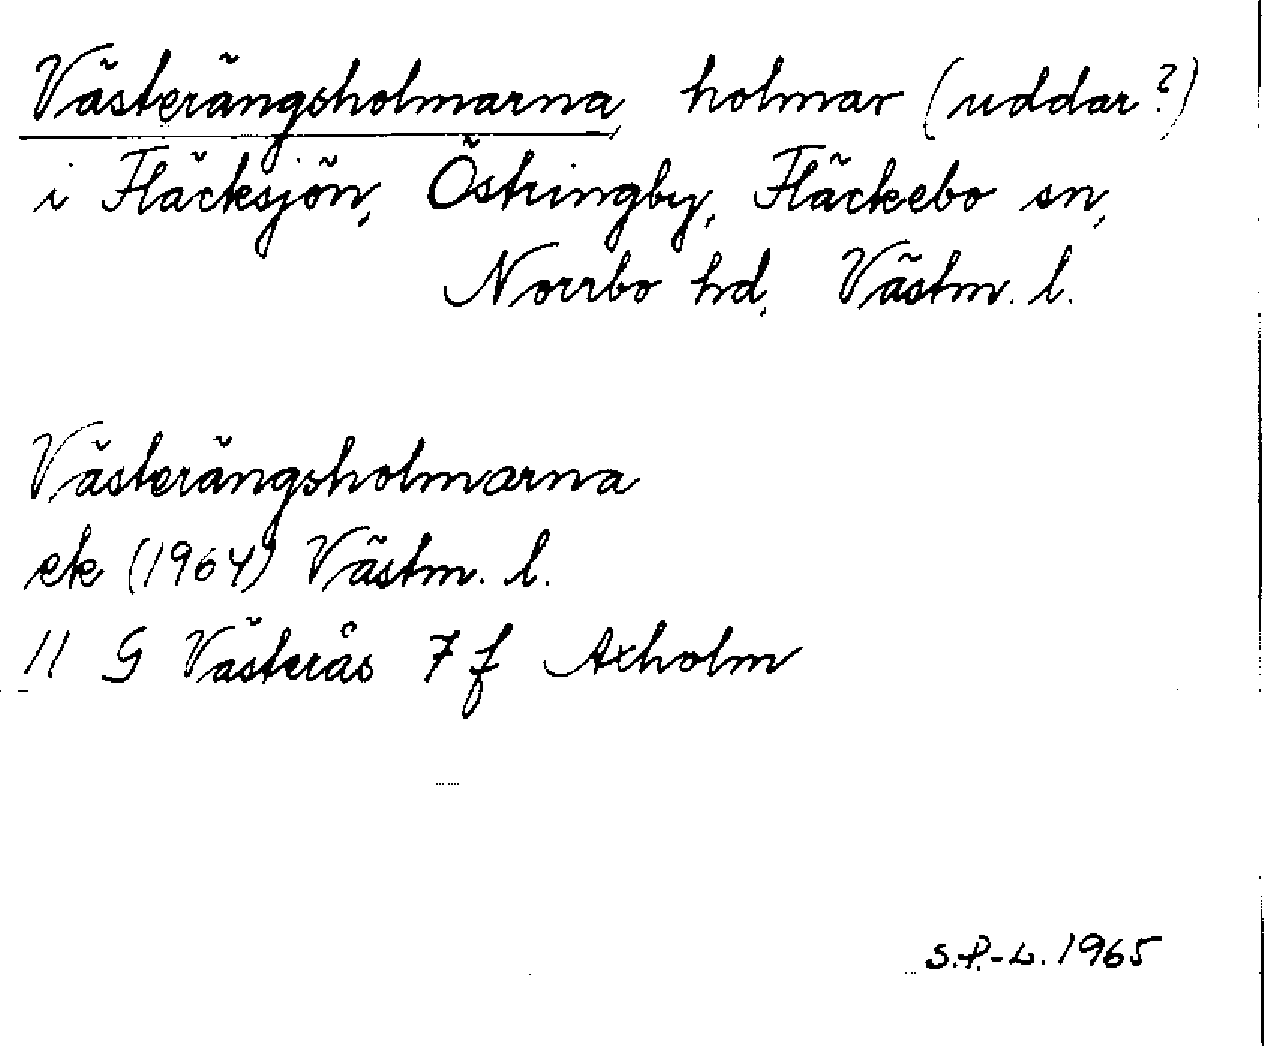 Västerängsholmarna, holmar (uddar?)
i Fläcksjön, Östringby, Fläckebo sn,
Norrbo hd, Västm. l.
Västerängsholmarna
ek (1964) Västm. l.
11 G Västerås 7 f Axholm
S.P.-L. 1965